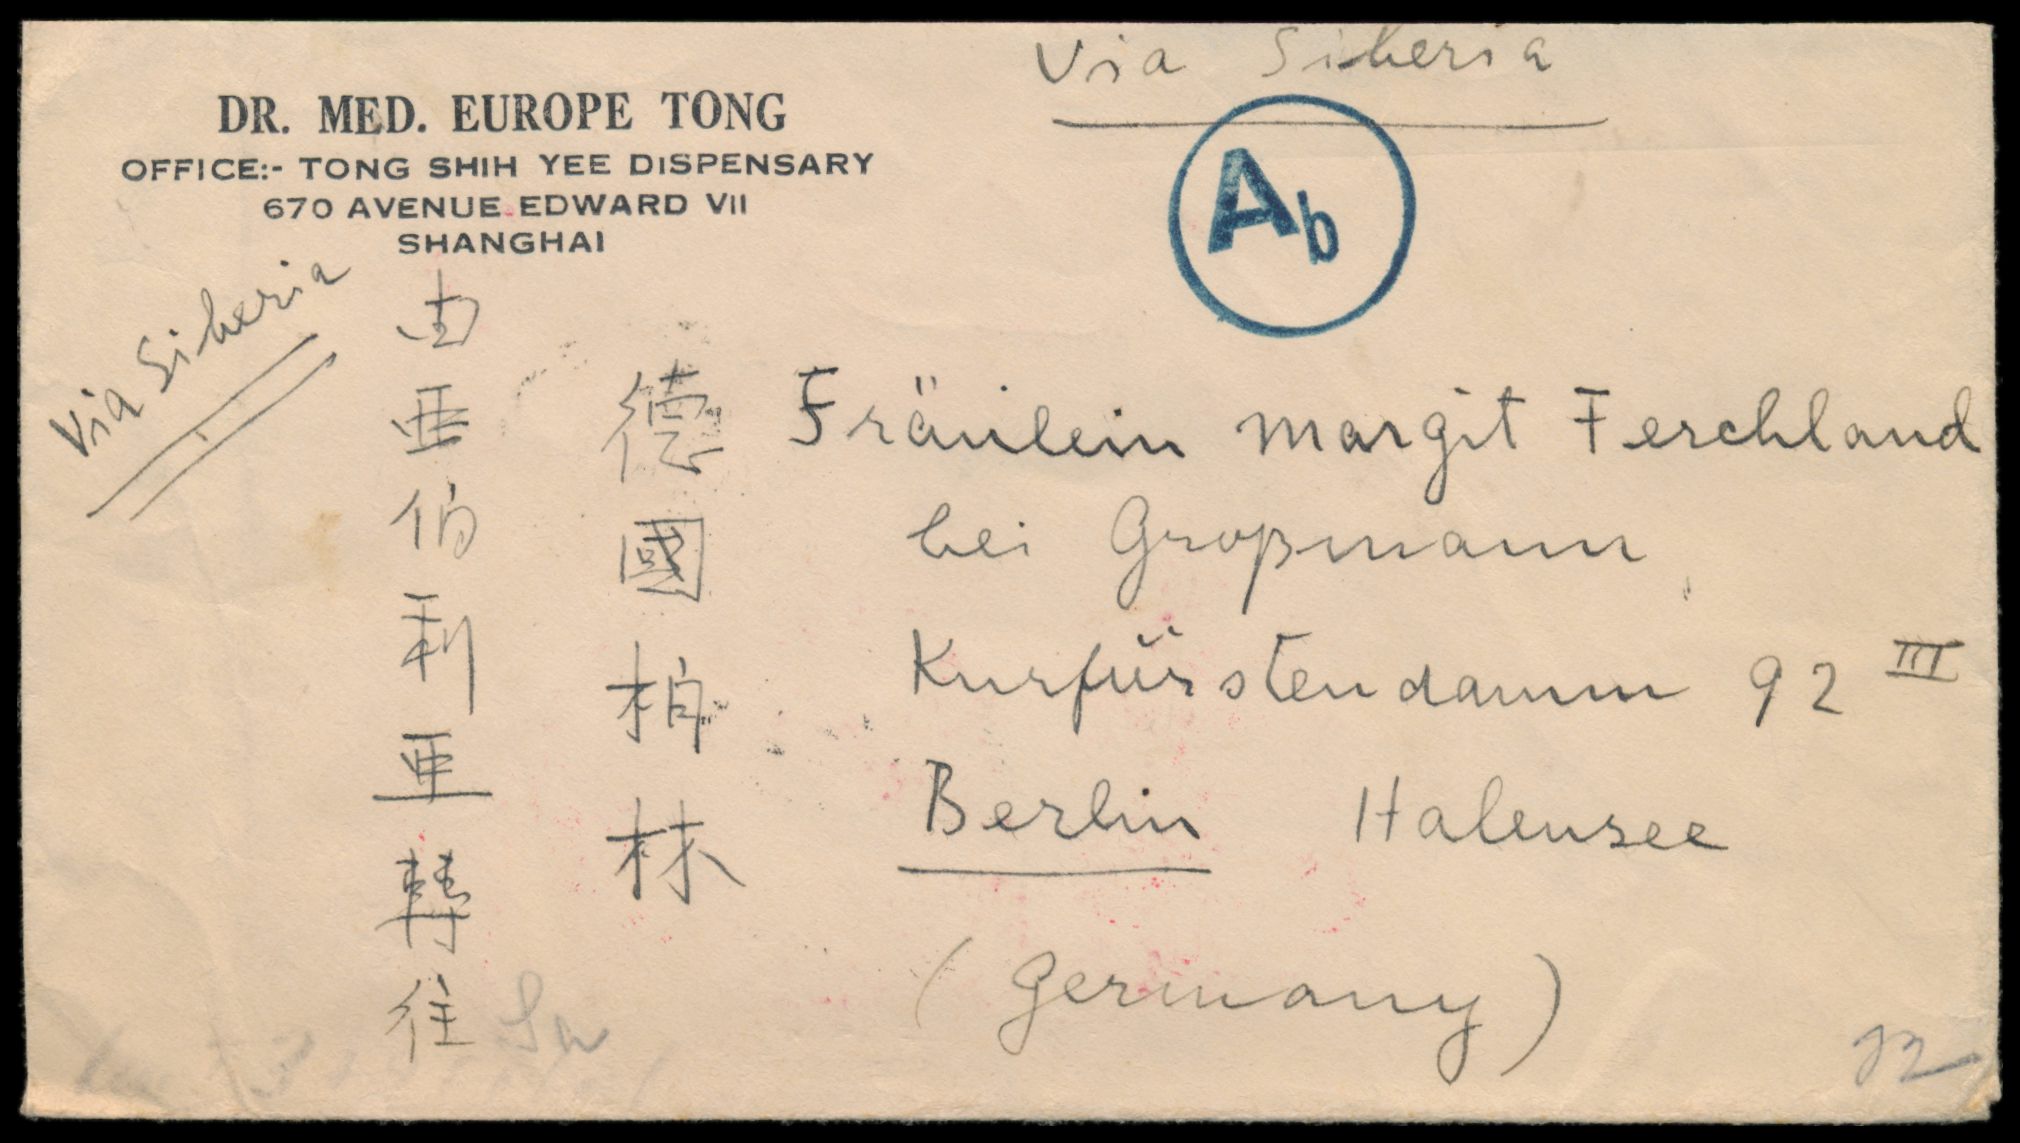 Via Siberia
DR. MED. EUROPE TONG
OFFICE:- TONG SHIH YEE DISPENSARY
670 AVENUE EDWARD VII
SHANGHAI
Ab
Via Siberia
德國柏林
由亜伯利亜轉往
Fräulein Margit Ferchland
bei Großmann
Kurfürstendamm 92 III
Berlin Halensee
(Germany)